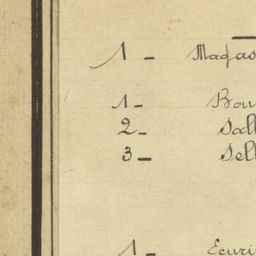 1 - Magas
1 - Bou
2 - Sall
3 - Sell
1 - Ecuri